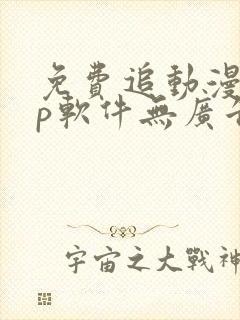 免費追動漫
p軟件無廣
宇宙之大戰神